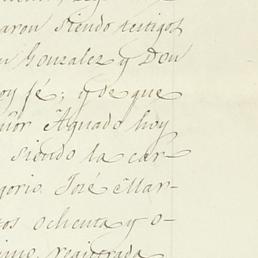 aron siendo testigos
Gonzalez y Don
oy fé; y de que
ñor Aguado hoy
siendo la car-
gorio José Mar-
os ochenta y o-
registrada